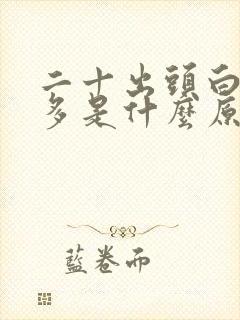 二十出頭白
多是什麼原
藍卷而